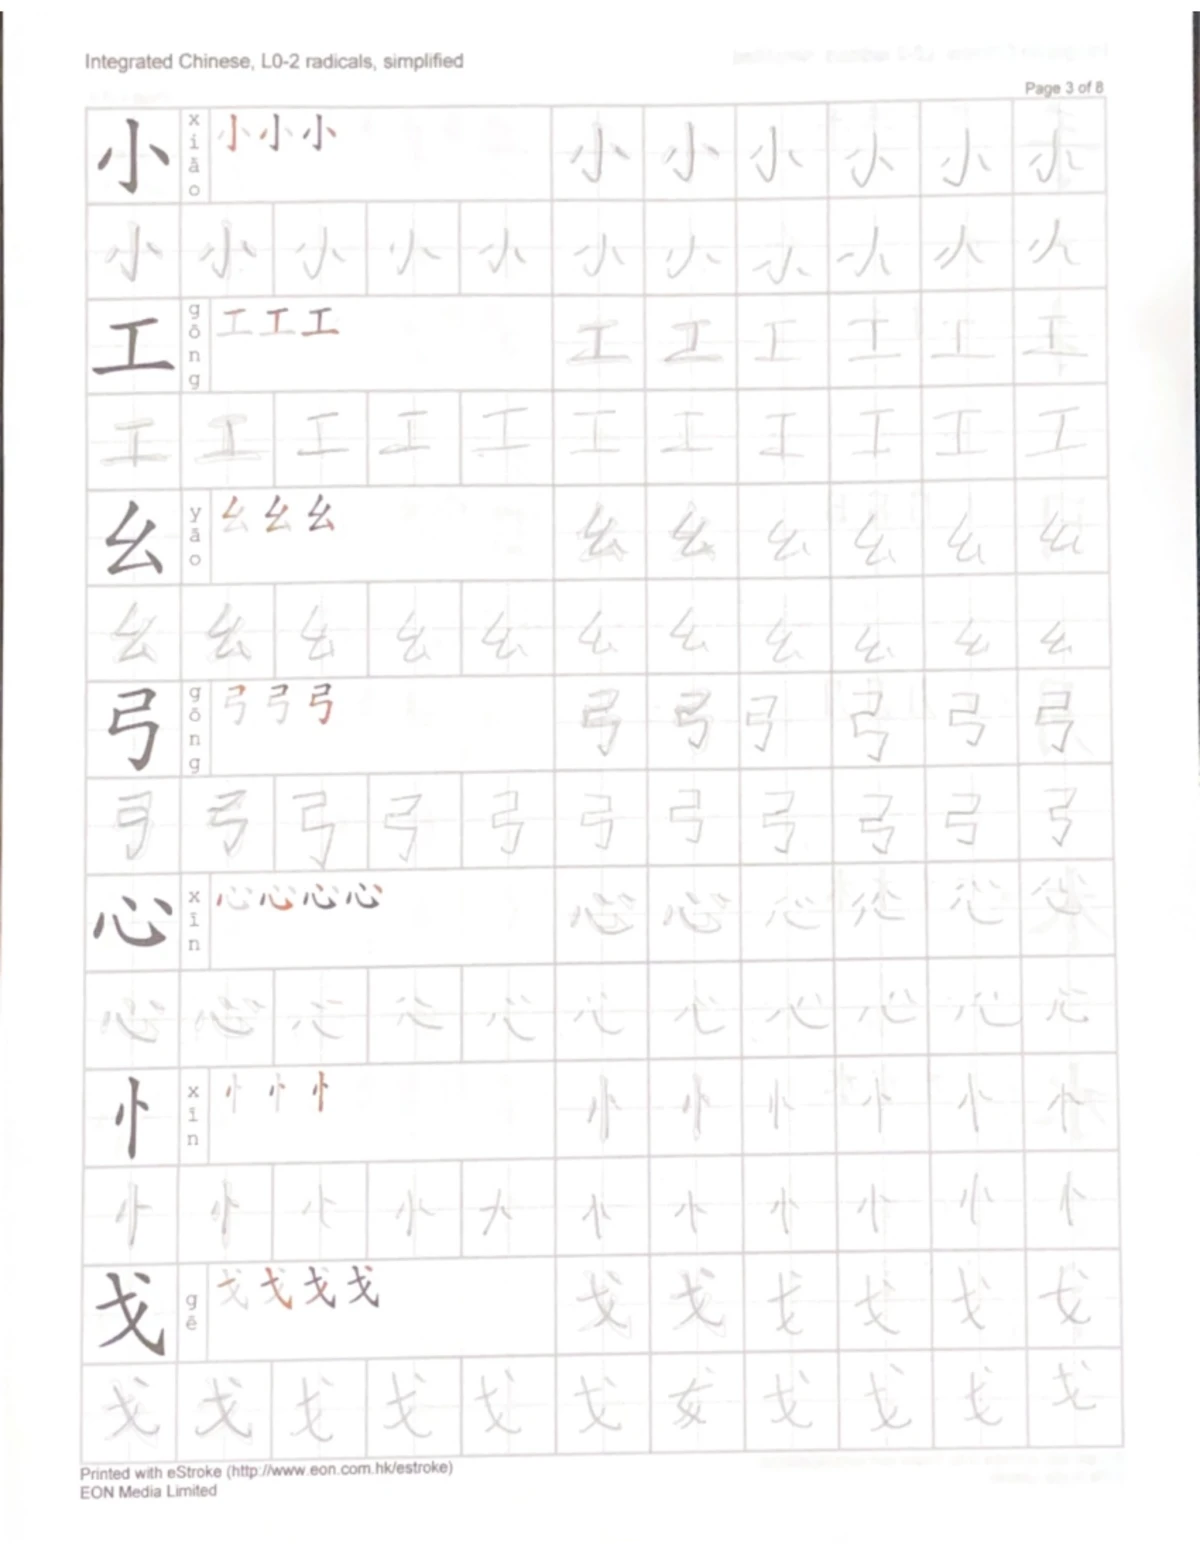 Integrated Chinese, L0-2 radicals, simplified
Page 3 of 8
小 xiǎo 小 小 小 小 小 小 小 小 小
小 小 小 小 小 小 小 小 小 小 小
工 gōng 工 工 工 工 工 工 工 工 工
工 工 工 工 工 工 工 工 工 工 工
幺 yāo 幺 幺 幺 幺 幺 幺 幺 幺 幺
幺 幺 幺 幺 幺 幺 幺 幺 幺 幺 幺
弓 gōng 弓 弓 弓 弓 弓 弓 弓 弓 弓
弓 弓 弓 弓 弓 弓 弓 弓 弓 弓 弓
心 xīn 心 心 心 心 心 心 心 心 心 心
心 心 心 心 心 心 心 心 心 心 心
忄 xīn 忄 忄 忄 忄 忄 忄 忄 忄 忄
忄 忄 忄 忄 忄 忄 忄 忄 忄 忄 忄
戈 gē 戈 戈 戈 戈 戈 戈 戈 戈 戈 戈
戈 戈 戈 戈 戈 戈 戈 戈 戈 戈 戈
Printed with eStroke (http://www.eon.com.hk/estroke)
EON Media Limited